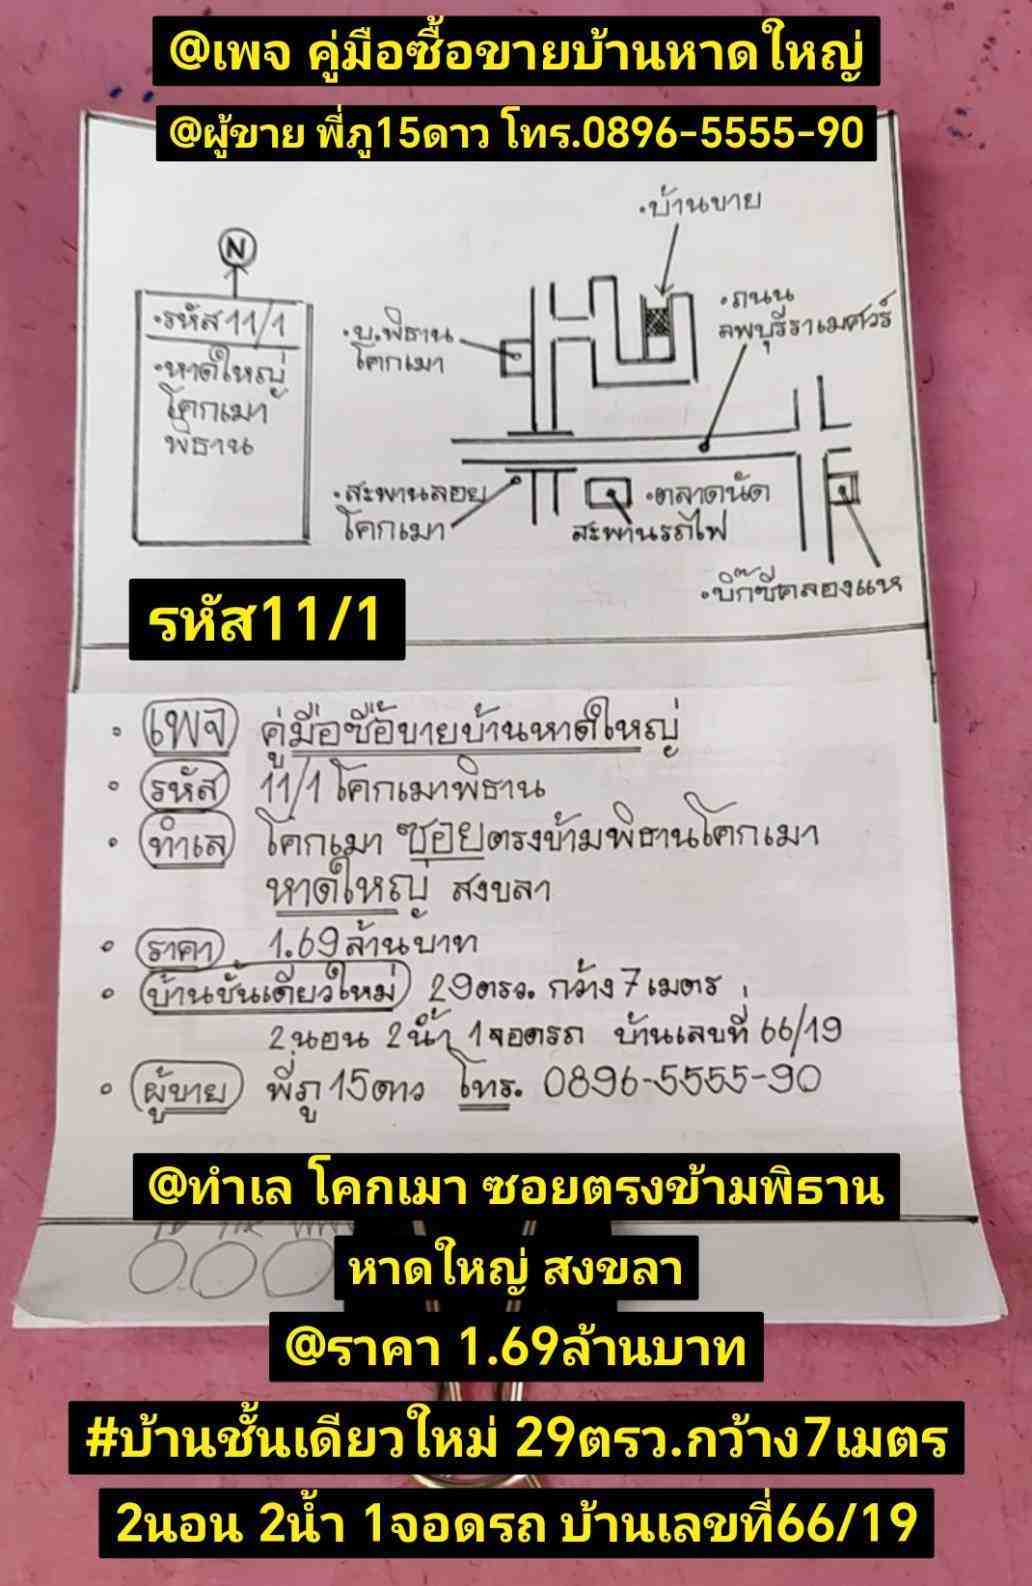 @เพจ คู่มือซื้อขายบ้านหาดใหญ่
@ผู้ขาย พี่ภู15ดาว โทร.0896-5555-90
•บ้านขาย
N
•รหัส 11/1
•หาดใหญ่
โคกเมา
พิธาน
•บ.พิธาน
โคกเมา
•ถนน
ลพบุรีราเมศวร์
•สะพานลอย
โคกเมา
•ตลาดนัด
สะพานรถไฟ
•บิ๊กซีคลองแห
รหัส11/1
• เพจ คู่มือซื้อขายบ้านหาดใหญ่
• รหัส 11/1 โคกเมาพิธาน
• ทำเล โคกเมา ซอยตรงข้ามพิธานโคกเมา
หาดใหญ่ สงขลา
• ราคา 1.69 ล้านบาท
• บ้านชั้นเดียวใหม่ 29ตรว. กว้าง 7 เมตร
2นอน 2น้ำ 1จอดรถ บ้านเลขที่ 66/19
• ผู้ขาย พี่ภู 15ดาว โทร. 0896-5555-90
@ทำเล โคกเมา ซอยตรงข้ามพิธาน
หาดใหญ่ สงขลา
@ราคา 1.69ล้านบาท
#บ้านชั้นเดียวใหม่ 29ตรว.กว้าง7เมตร
2นอน 2น้ำ 1จอดรถ บ้านเลขที่66/19